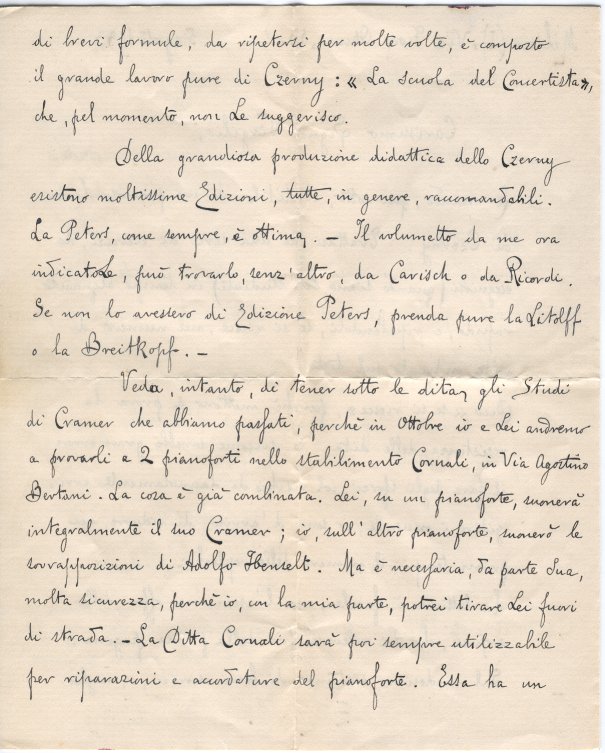 di brevi formule, da ripetersi per molte volte, è composto
il grande lavoro pure di Czerny: « La scuola del Concertista »,
che, pel momento, non Le suggerisco.
Della grandiosa produzione didattica dello Czerny
esistono moltissime Edizioni, tutte, in genere, raccomandabili.
La Peters, come sempre, è ottima. – Il volumetto da me ora
indicatoLe, può trovarlo, senz'altro, da Carisch o da Ricordi.
Se non lo avessero di Edizione Peters, prenda pure la Litolff
o la Breitkopf. –
Veda, intanto, di tener sotto le dita gli Studi
di Cramer che abbiamo passati, perchè in Ottobre io e Lei andremo
a provarli a 2 pianoforti nello stabilimento Cornali, in Via Agostino
Bertani. La cosa è già combinata. Lei, su un pianoforte, suonerà
integralmente il suo Cramer; io, sull'altro pianoforte, suonerò le
sovrapposizioni di Adolfo Henselt. Ma è necessaria, da parte Sua,
molta sicurezza, perchè io, con la mia parte, potrei tirare Lei fuori
di strada. – La Ditta Cornali sarà poi sempre utilizzabile
per riparazioni e accordature del pianoforte. Essa ha un